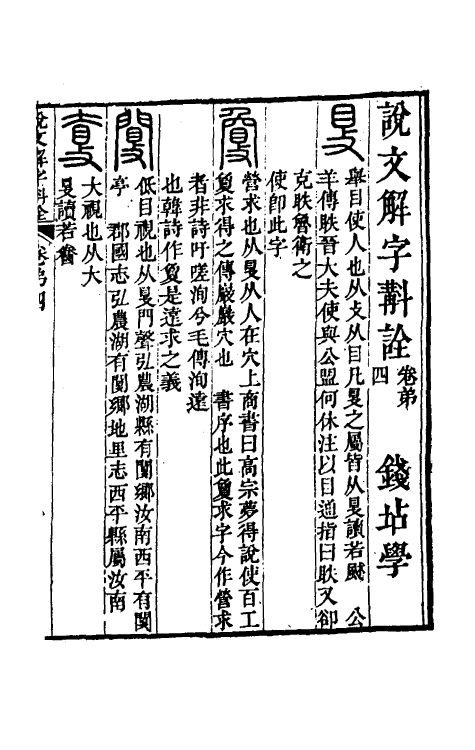 說文解字斠詮 卷弟四 錢坫學
𥄎 舉目使人也从攴从目凡𥄎之屬皆从𥄎讀若䬂 公
羊傳眣晉大夫使與公盟何休注以目通指曰眣又卻
克眣魯衛之
使卽此字
敻 營求也从𥄎从人在穴上商書曰高宗夢得說使百工
敻求得之傅巖巖穴也 書序也此敻求字今作營求
者非詩吁嗟洵兮毛傳洵遠
也韓詩作敻是遠求之義
閺 低目視也从𥄎門聲弘農湖縣有閺鄉汝南西平有閺
亭 郡國志弘農湖有閺鄉地里志西平縣屬汝南
𡙮 大視也从大
𥄎讀若𪓊
說文解字斠詮 卷弟四